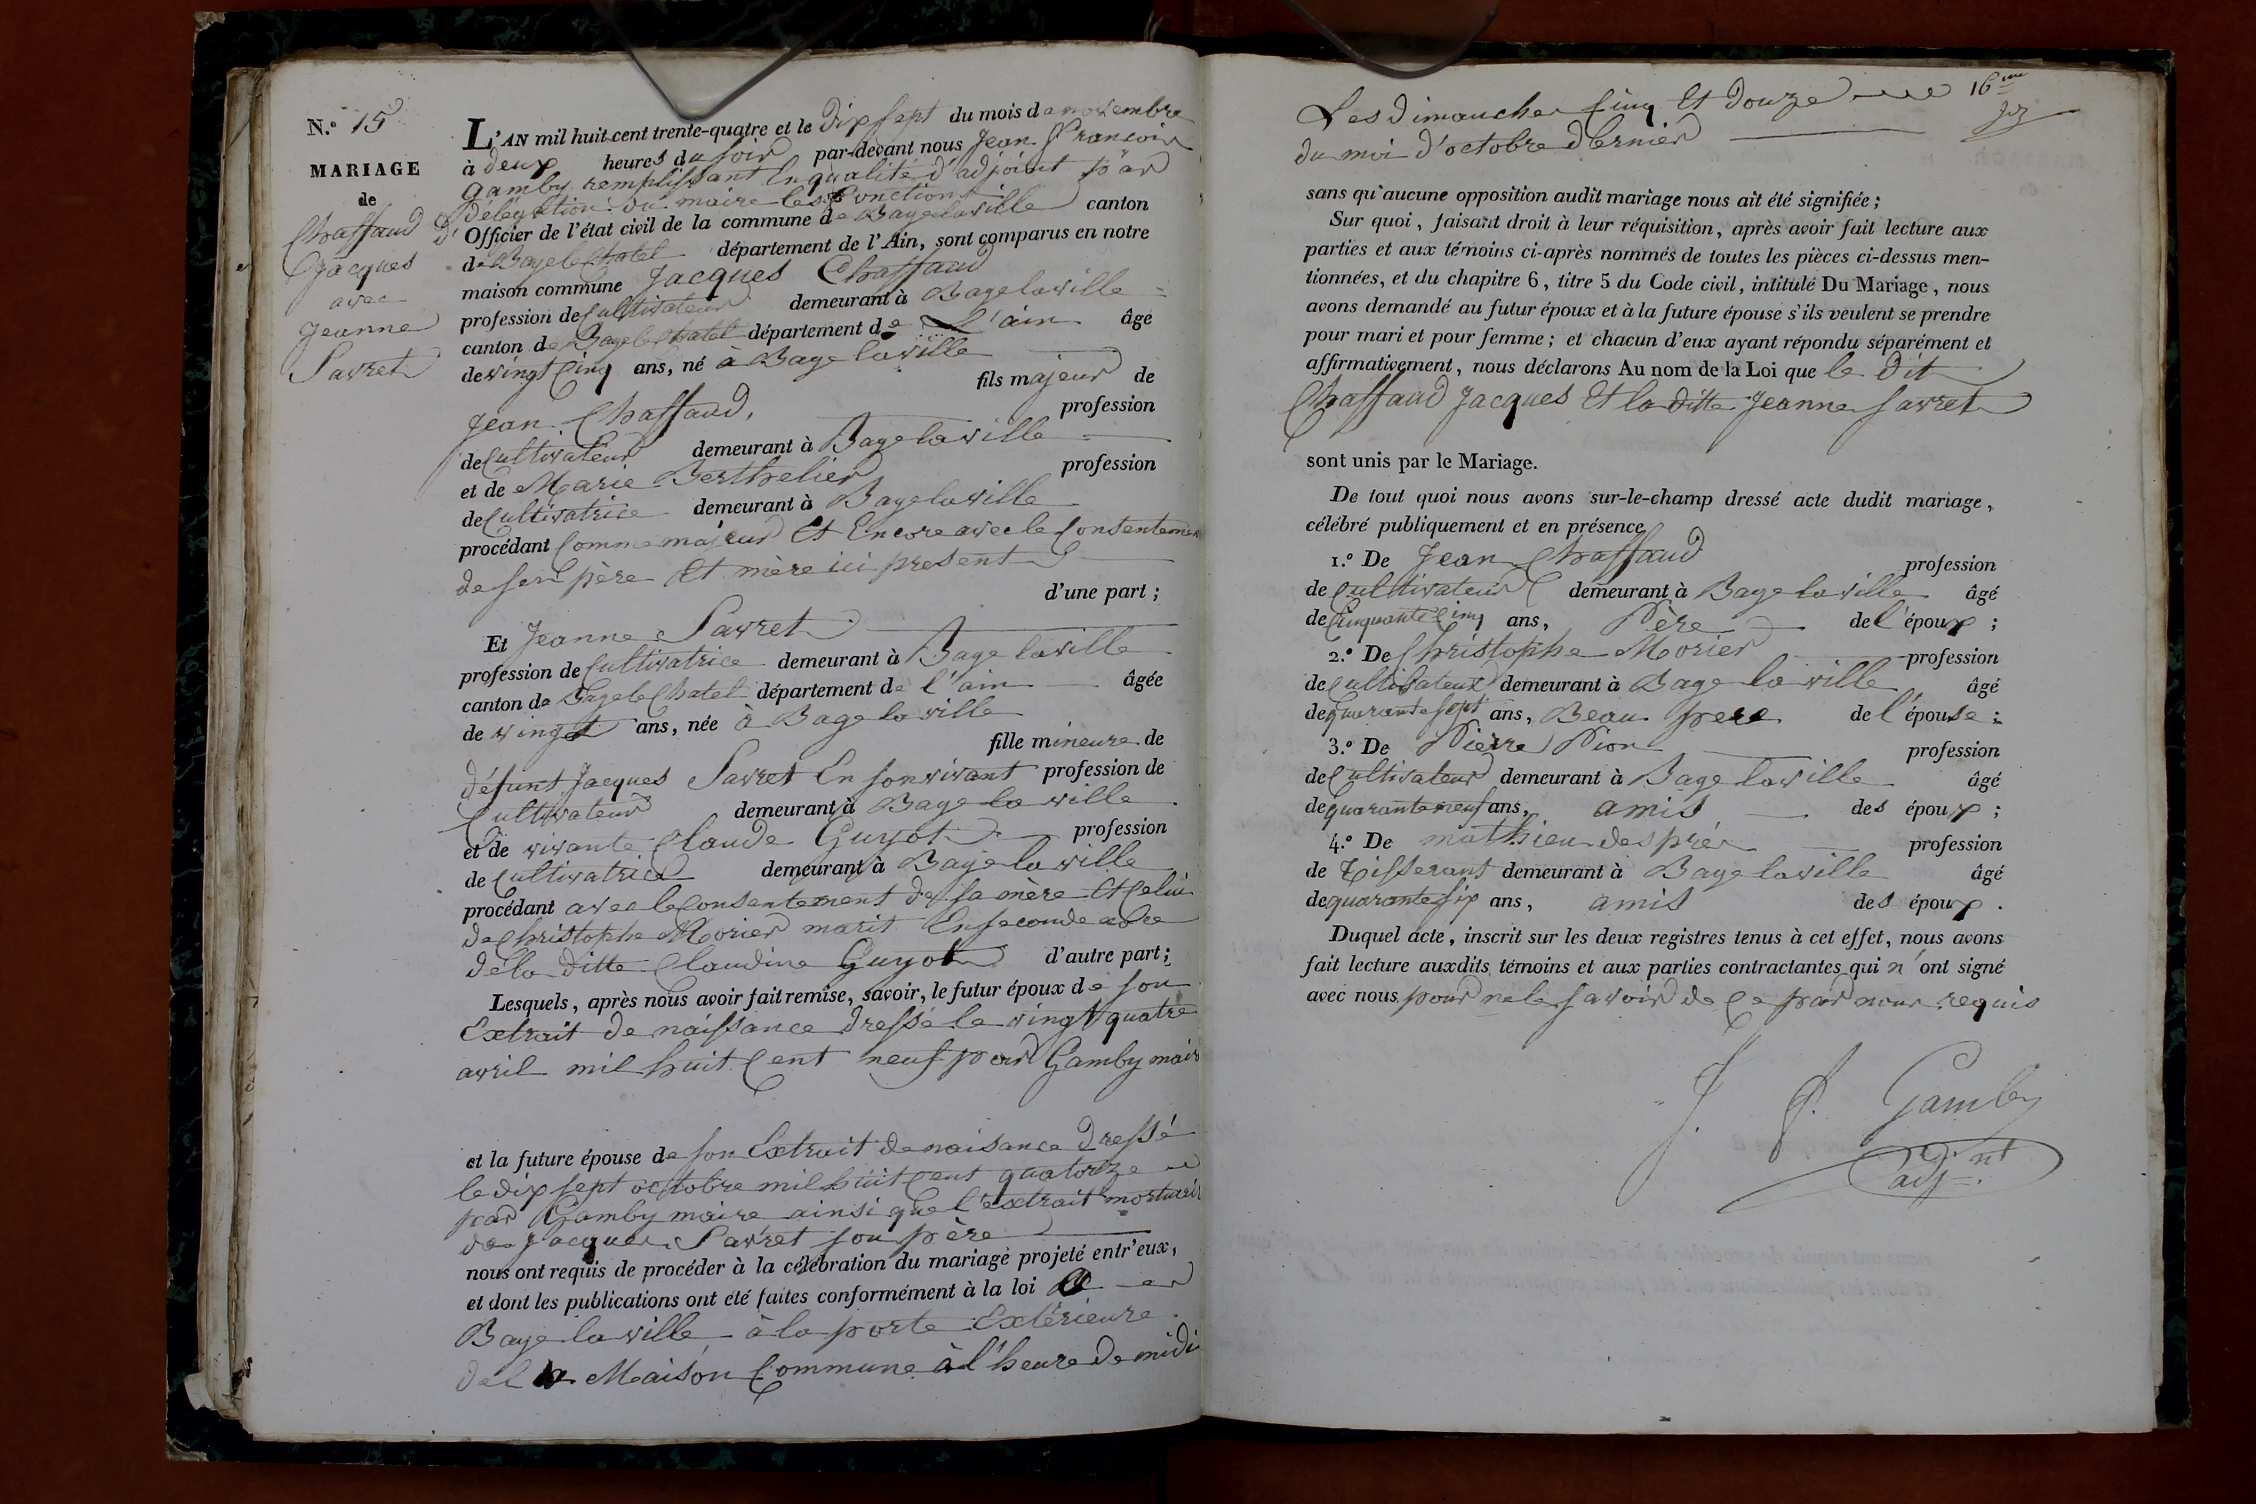 N.° 15
MARIAGE
de
Chaffaud
Jacques
avec
Jeanne
Savret
L'AN mil huit cent trente-quatre et le dix sept du mois de novembre
à deux heures du soir par-devant nous Jean François
Gamby remplissant en qualité d'adjoint par
délégation du maire les fonctions
d' Officier de l'état civil de la commune de Bagelaville canton
de Bagelechatel département de l'Ain, sont comparus en notre
maison commune Jacques Chaffaud
profession de Cultivateur demeurant à Bagelaville
canton de Bagelechatel département de L'ain âgé
de vingt Cinq ans, né à Bage laville
fils majeur de
Jean Chaffaud, profession
de Cultivateur demeurant à Bagelaville
et de Marie Berthelier profession
de Cultivatrice demeurant à Bagelaville
procédant Comme majeur Et Encore avec le Consentemen
de ses père Et mère ici present
d'une part ;
Et Jeanne Savret
profession de Cultivatrice demeurant à Bage laville
canton de Bagele Chatel département de l'ain âgée
de vingt ans, née à Bage la ville
fille mineure de
défunt Jacques Savret En son vivant profession de
Cultivateur demeurant à Bage la ville
et de vivante Claude Guyot profession
de Cultivatrice demeurant à Bage la ville
procédant avec le Consentement de sa mère Et Celui
de Christophe Morier marit En seconde noce
de la ditte Claudine Guyot d'autre part ;
Lesquels, après nous avoir fait remise, savoir, le futur époux de son
Extrait de naissance dressé le vingt quatre
avril mil huit Cent neuf par Gamby mair
et la future épouse de son Extrait de naisance dressé
le dix sept octobre mil huit Cent quatorze
par Gamby maire ainsi que l'extrait mortuair
de Jacques Savret son père
nous ont requis de procéder à la célébration du mariage projeté entr'eux,
et dont les publications ont été faites conformément à la loi
Bage la ville à la porte Extérieure
de la Maison Commune à l'heure de midi
16me
Les dimanches Cinq Et douze
du moi d'octobre dernier
sans qu'aucune opposition audit mariage nous ait été signifiée ;
Sur quoi, faisant droit à leur réquisition, après avoir fait lecture aux
parties et aux témoins ci-après nommés de toutes les pièces ci-dessus men-
tionnées, et du chapitre 6, titre 5 du Code civil, intitulé Du Mariage, nous
avons demandé au futur époux et à la future épouse s'ils veulent se prendre
pour mari et pour femme ; et chacun d'eux ayant répondu séparément et
affirmativement, nous déclarons Au nom de la Loi que le dit
Chaffaud Jacques Et la ditte Jeanne Savret
sont unis par le Mariage.
De tout quoi nous avons sur-le-champ dressé acte dudit mariage,
célébré publiquement et en présence
1.° De Jean Chaffaud profession
de Cultivateur demeurant à Bage la ville âgé
de Cinquante Cinq ans, Père de l'époux ;
2.° De Christophe Morier profession
de Cultivateur demeurant à Bage la ville âgé
de quarante sept ans, Beau pere de l'épouse ;
3.° De Pierre Pion profession
de Cultivateur demeurant à Bage laville âgé
de quarante neuf ans, amis des époux ;
4.° De mathieu després profession
de Tisserant demeurant à Bage laville âgé
de quarante six ans, amis des époux .
Duquel acte, inscrit sur les deux registres tenus à cet effet, nous avons
fait lecture auxdits témoins et aux parties contractantes qui n'ont signé
avec nous pour ne le savoir de Ce par nous requis
J. f. Gamby
adj.nt